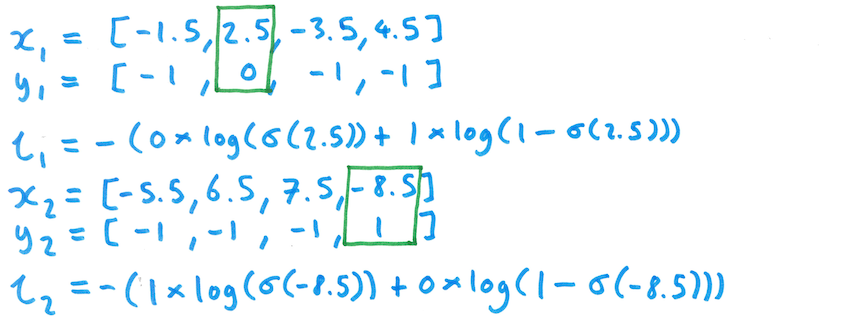 x₁ = [-1.5, 2.5, -3.5, 4.5]
y₁ = [-1, 0, -1, -1]
l₁ = -(0×log(σ(2.5)) + 1×log(1-σ(2.5)))
x₂ = [-5.5, 6.5, 7.5, -8.5]
y₂ = [-1, -1, -1, 1]
l₂ = -(1×log(σ(-8.5)) + 0×log(1-σ(-8.5)))